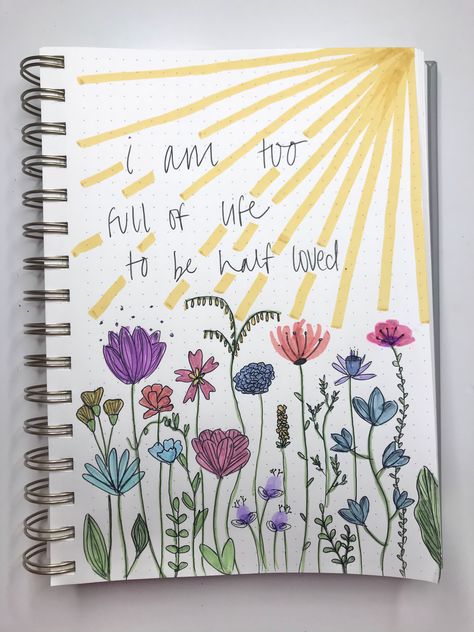 i am too
full of life
to be half loved.